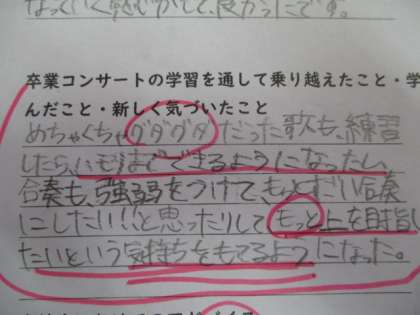 なっていく気もちがして、良かったです。
卒業コンサートの学習を通して乗り越えたこと・学
んだこと・新しく気づいたこと
めちゃくちゃグダグダだった歌も、練習
したら、できるようになったし、
合奏も、強弱をつけて、もっとすごい合奏
にしたい!!と思ったりして、もっと上を目指し
たいという気持ちをもてるようになった。